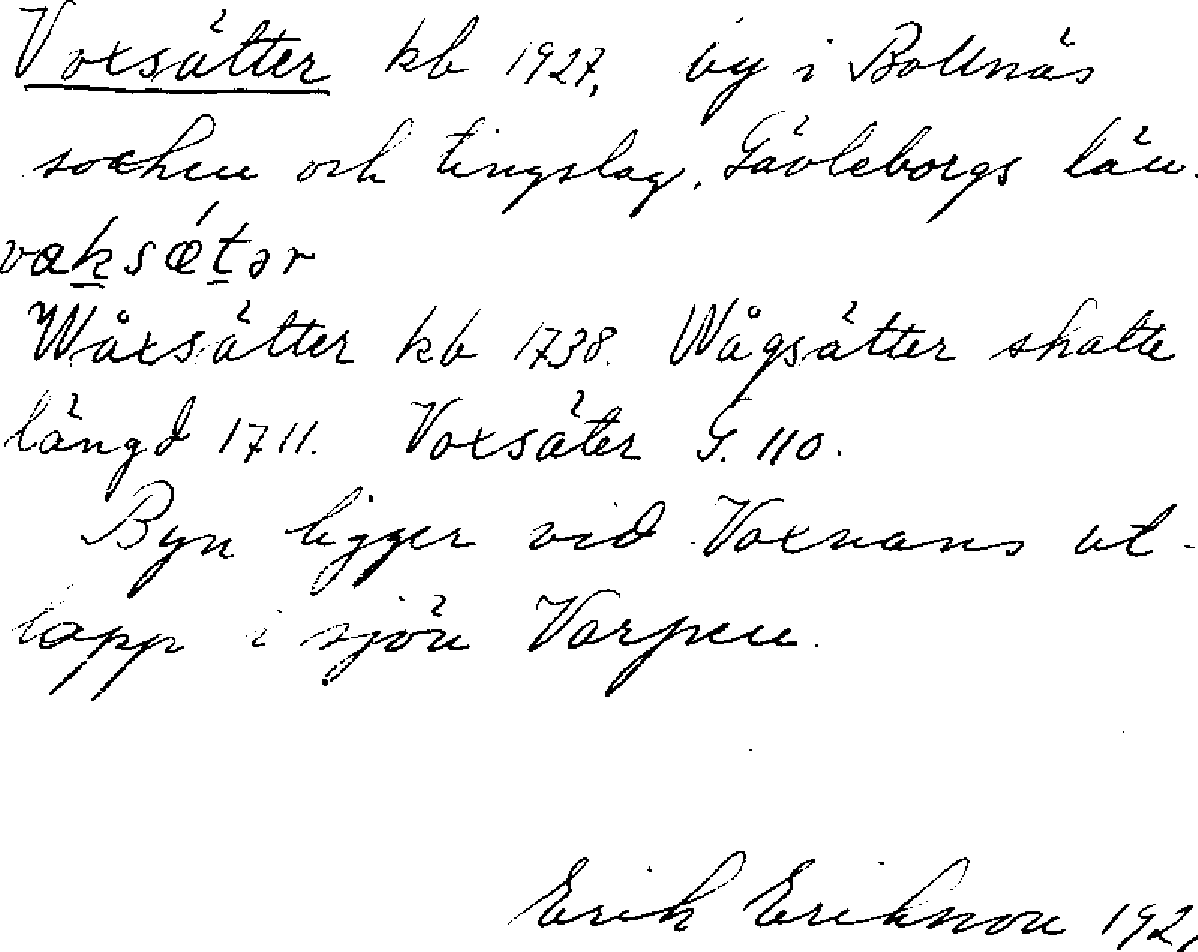 Voxsätter kb 1927, by i Bollnäs
socken och tingslag, Gävleborgs län.
vaksǽtər
Wåxsätter kb 1738. Wågsätter skatte
längd 1711. Voxsäter G. 110.
Byn ligger vid Voxnans ut-
lopp i sjön Varpen.
Erik Eriksson 192